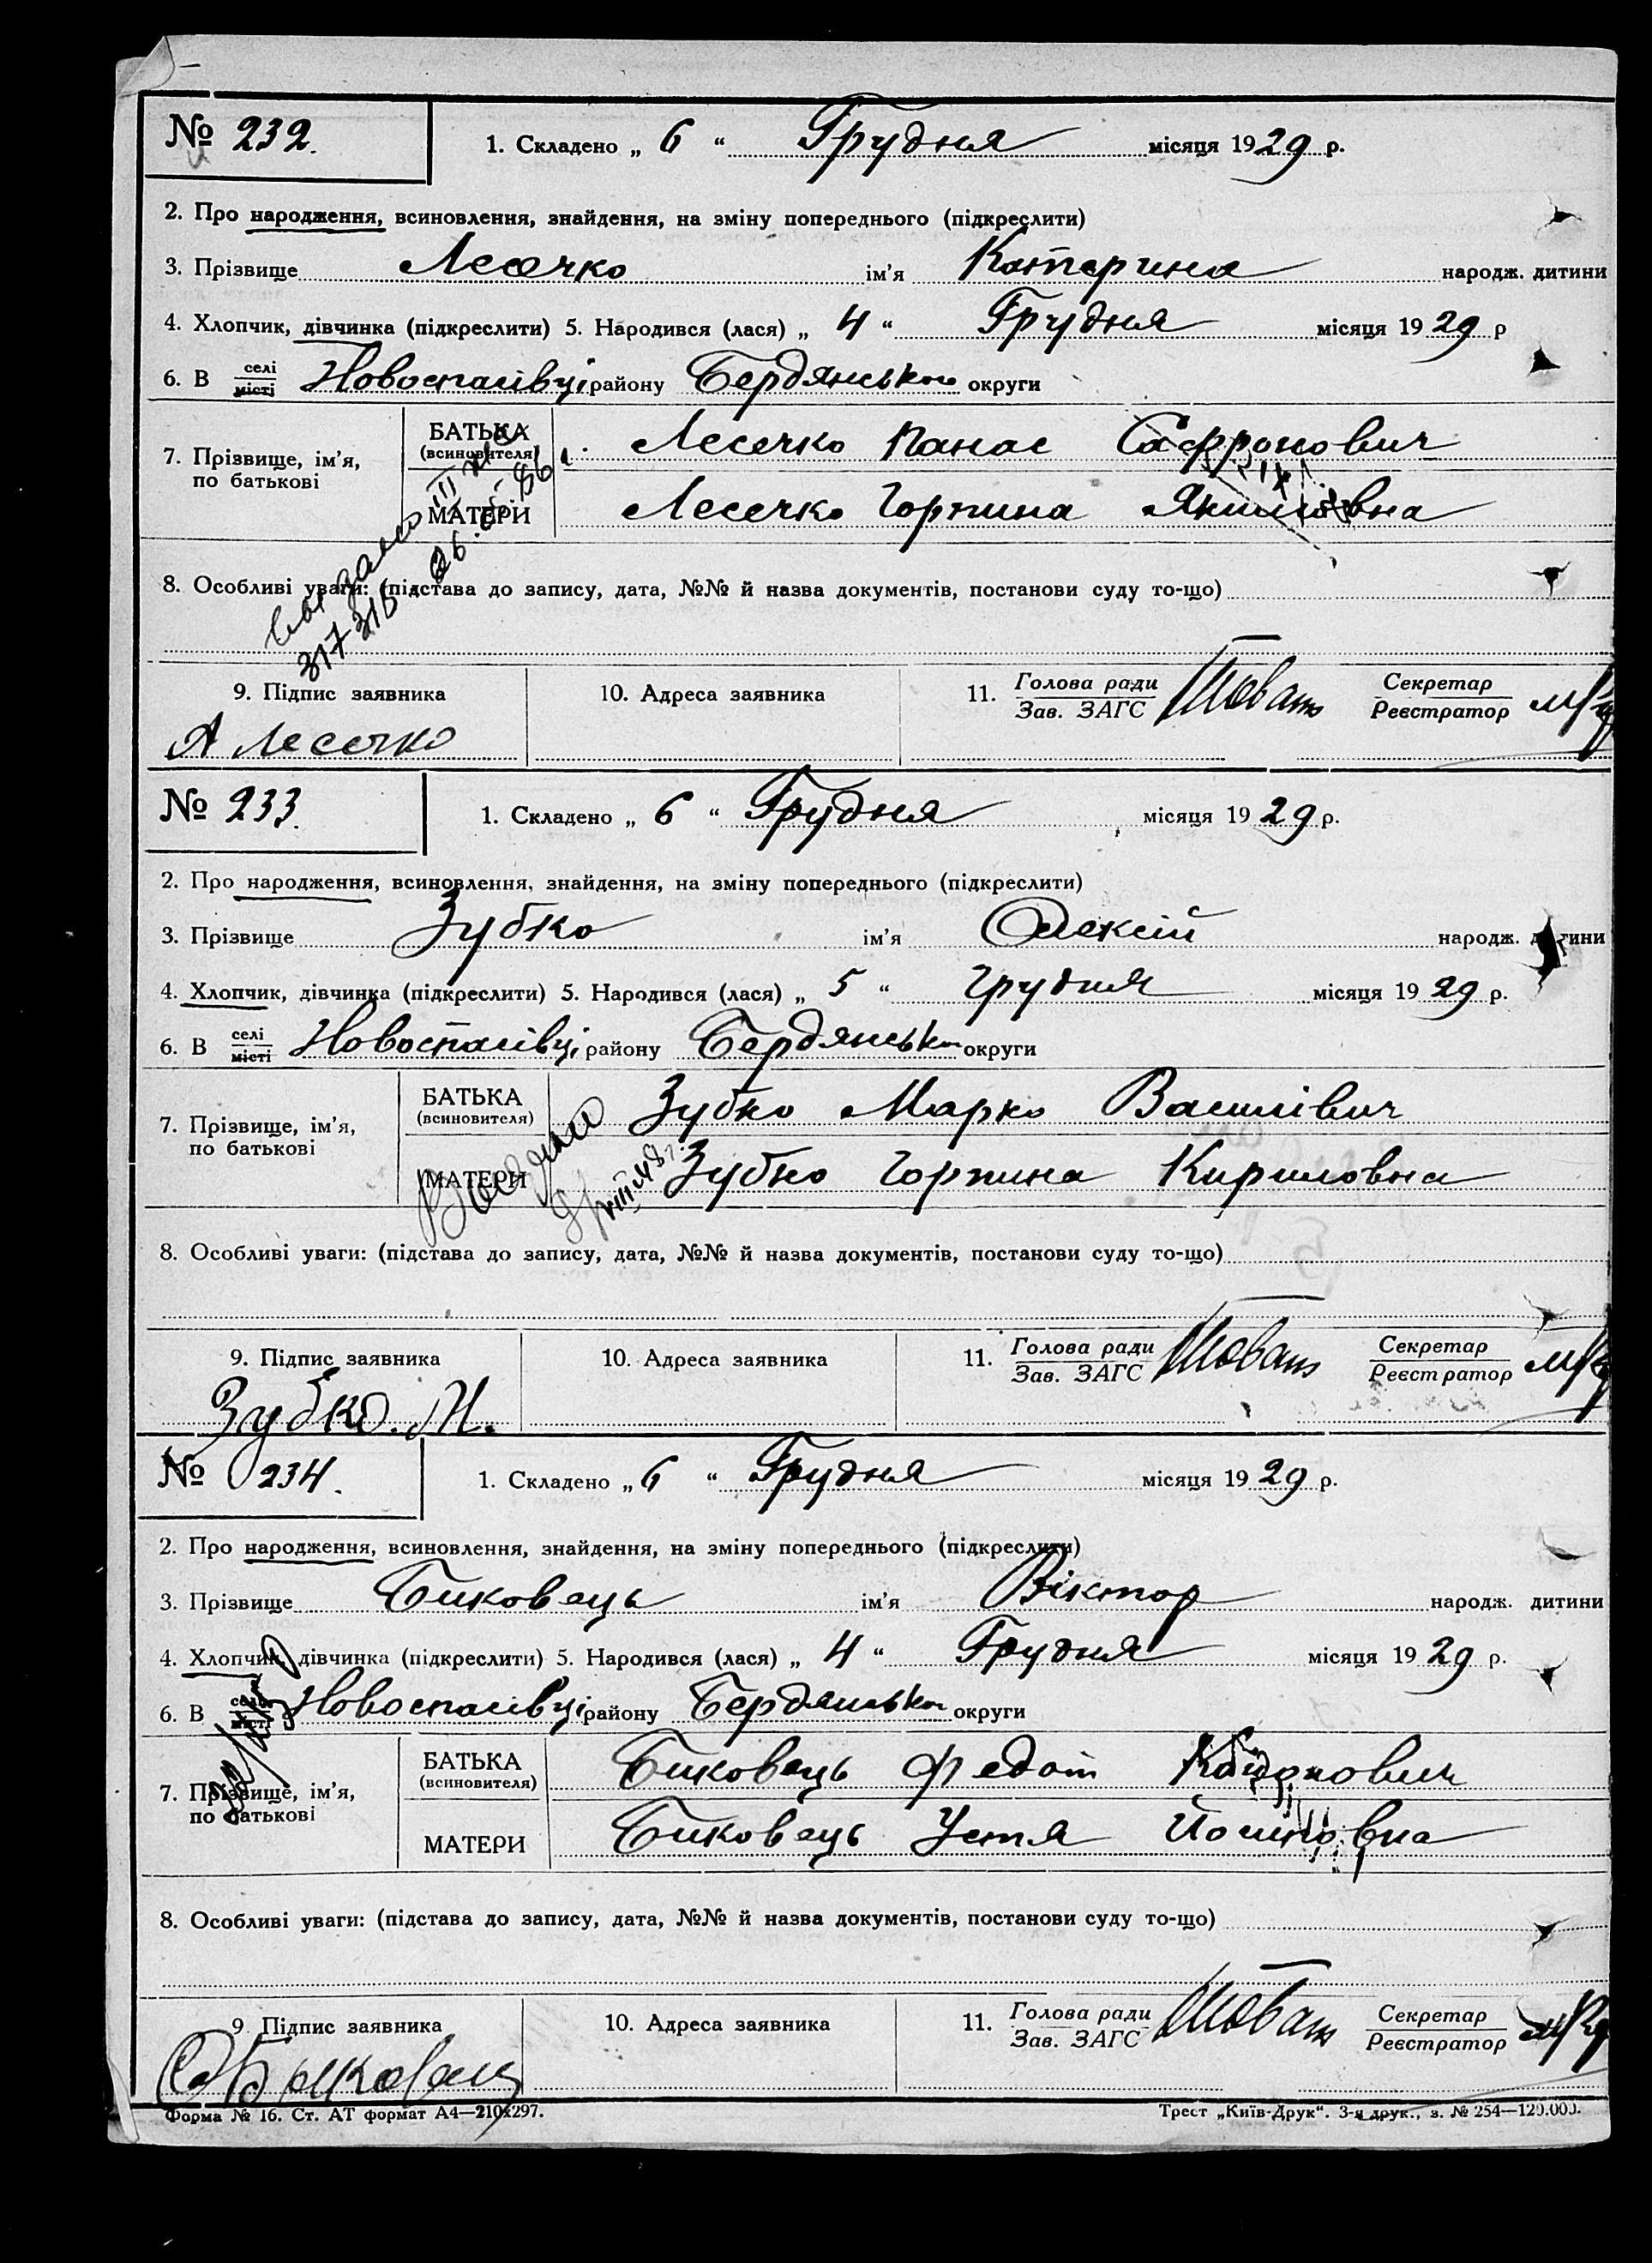 № 232.
1. Складено „ 6 “ Грудня місяця 1929 р.
2. Про народження, всиновлення, знайдення, на зміну попереднього (підкреслити)
3. Прізвище Лесечко ім’я Катерина народж. дитини
4. Хлопчик, дівчинка (підкреслити) 5. Народився (лася) „ 4 “ Грудня місяця 1929 р
6. В селі місті Новоспасівці району Бердянської округи
7. Прізвище, ім’я, по батькові
БАТЬКА (всиновителя) Лесечко Панас Сафронович
МАТЕРИ Лесечко Горпина
26.05.86
8. Особливі уваги: (підстава до запису, дата, №№ й назва документів, постанови суду то-що)
9. Підпис заявника 10. Адреса заявника 11. Голова ради Зав. ЗАГС Секретар Реєстратор
А Лесечко
№ 233.
1. Складено „ 6 “ Грудня місяця 1929 р.
2. Про народження, всиновлення, знайдення, на зміну попереднього (підкреслити)
3. Прізвище Зубко ім’я Олексій народж. дитини
4. Хлопчик, дівчинка (підкреслити) 5. Народився (лася) „ 5 “ грудня місяця 1929 р.
6. В селі місті Новоспасівці району Бердянської округи
7. Прізвище, ім’я, по батькові
БАТЬКА (всиновителя) Зубко Марко Василівич
МАТЕРИ Зубко Горпина Кириловна
8. Особливі уваги: (підстава до запису, дата, №№ й назва документів, постанови суду то-що)
9. Підпис заявника 10. Адреса заявника 11. Голова ради Зав. ЗАГС Секретар Реєстратор
Зубко. М.
№ 234.
1. Складено „ 6 “ Грудня місяця 1929 р.
2. Про народження, всиновлення, знайдення, на зміну попереднього (підкреслити)
3. Прізвище Биковець ім’я Віктор народж. дитини
4. Хлопчик, дівчинка (підкреслити) 5. Народився (лася) „ 4 “ Грудня місяця 1929 р.
6. В селі місті Новоспасівці району Бердянської округи
7. Прізвище, ім’я, по батькові
БАТЬКА (всиновителя) Биковець Федот
МАТЕРИ Биковець Устя Йосиповна
8. Особливі уваги: (підстава до запису, дата, №№ й назва документів, постанови суду то-що)
9 Підпис заявника 10. Адреса заявника 11. Голова ради Зав. ЗАГС Секретар Реєстратор
Форма № 16. Ст. АТ формат А4—210х297. Трест „Київ-Друк“. 3-я друк., з. № 254—120.000.